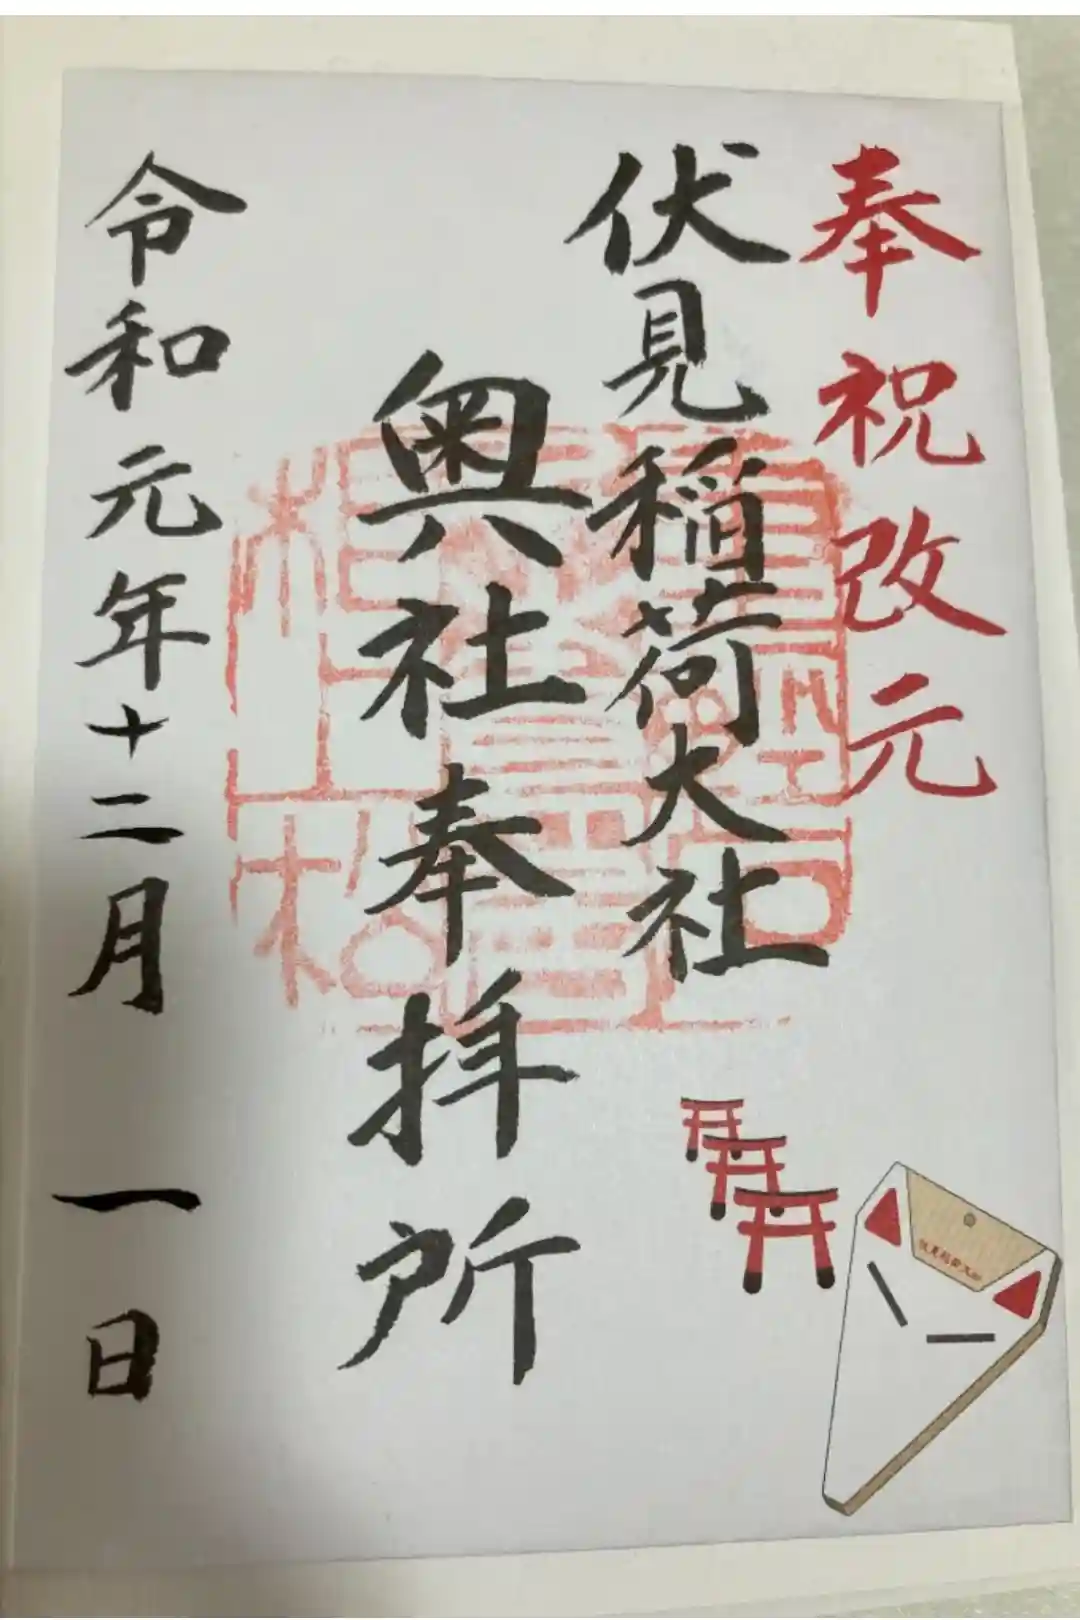 奉祝改元
伏見稲荷大社
奥社奉拝所
令和元年十二月一日